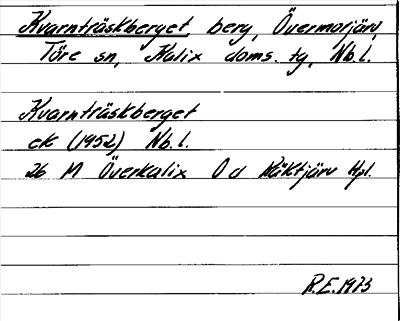 Kvarnträskberget, berg, Övermorjärv,
Töre sn, Kalix doms. tg, Nb. l.
Kvarnträskberget
ek (1952) Nb. l.
26 M Överkalix 0 d Räktjärv Hpl.
R.E. 1973